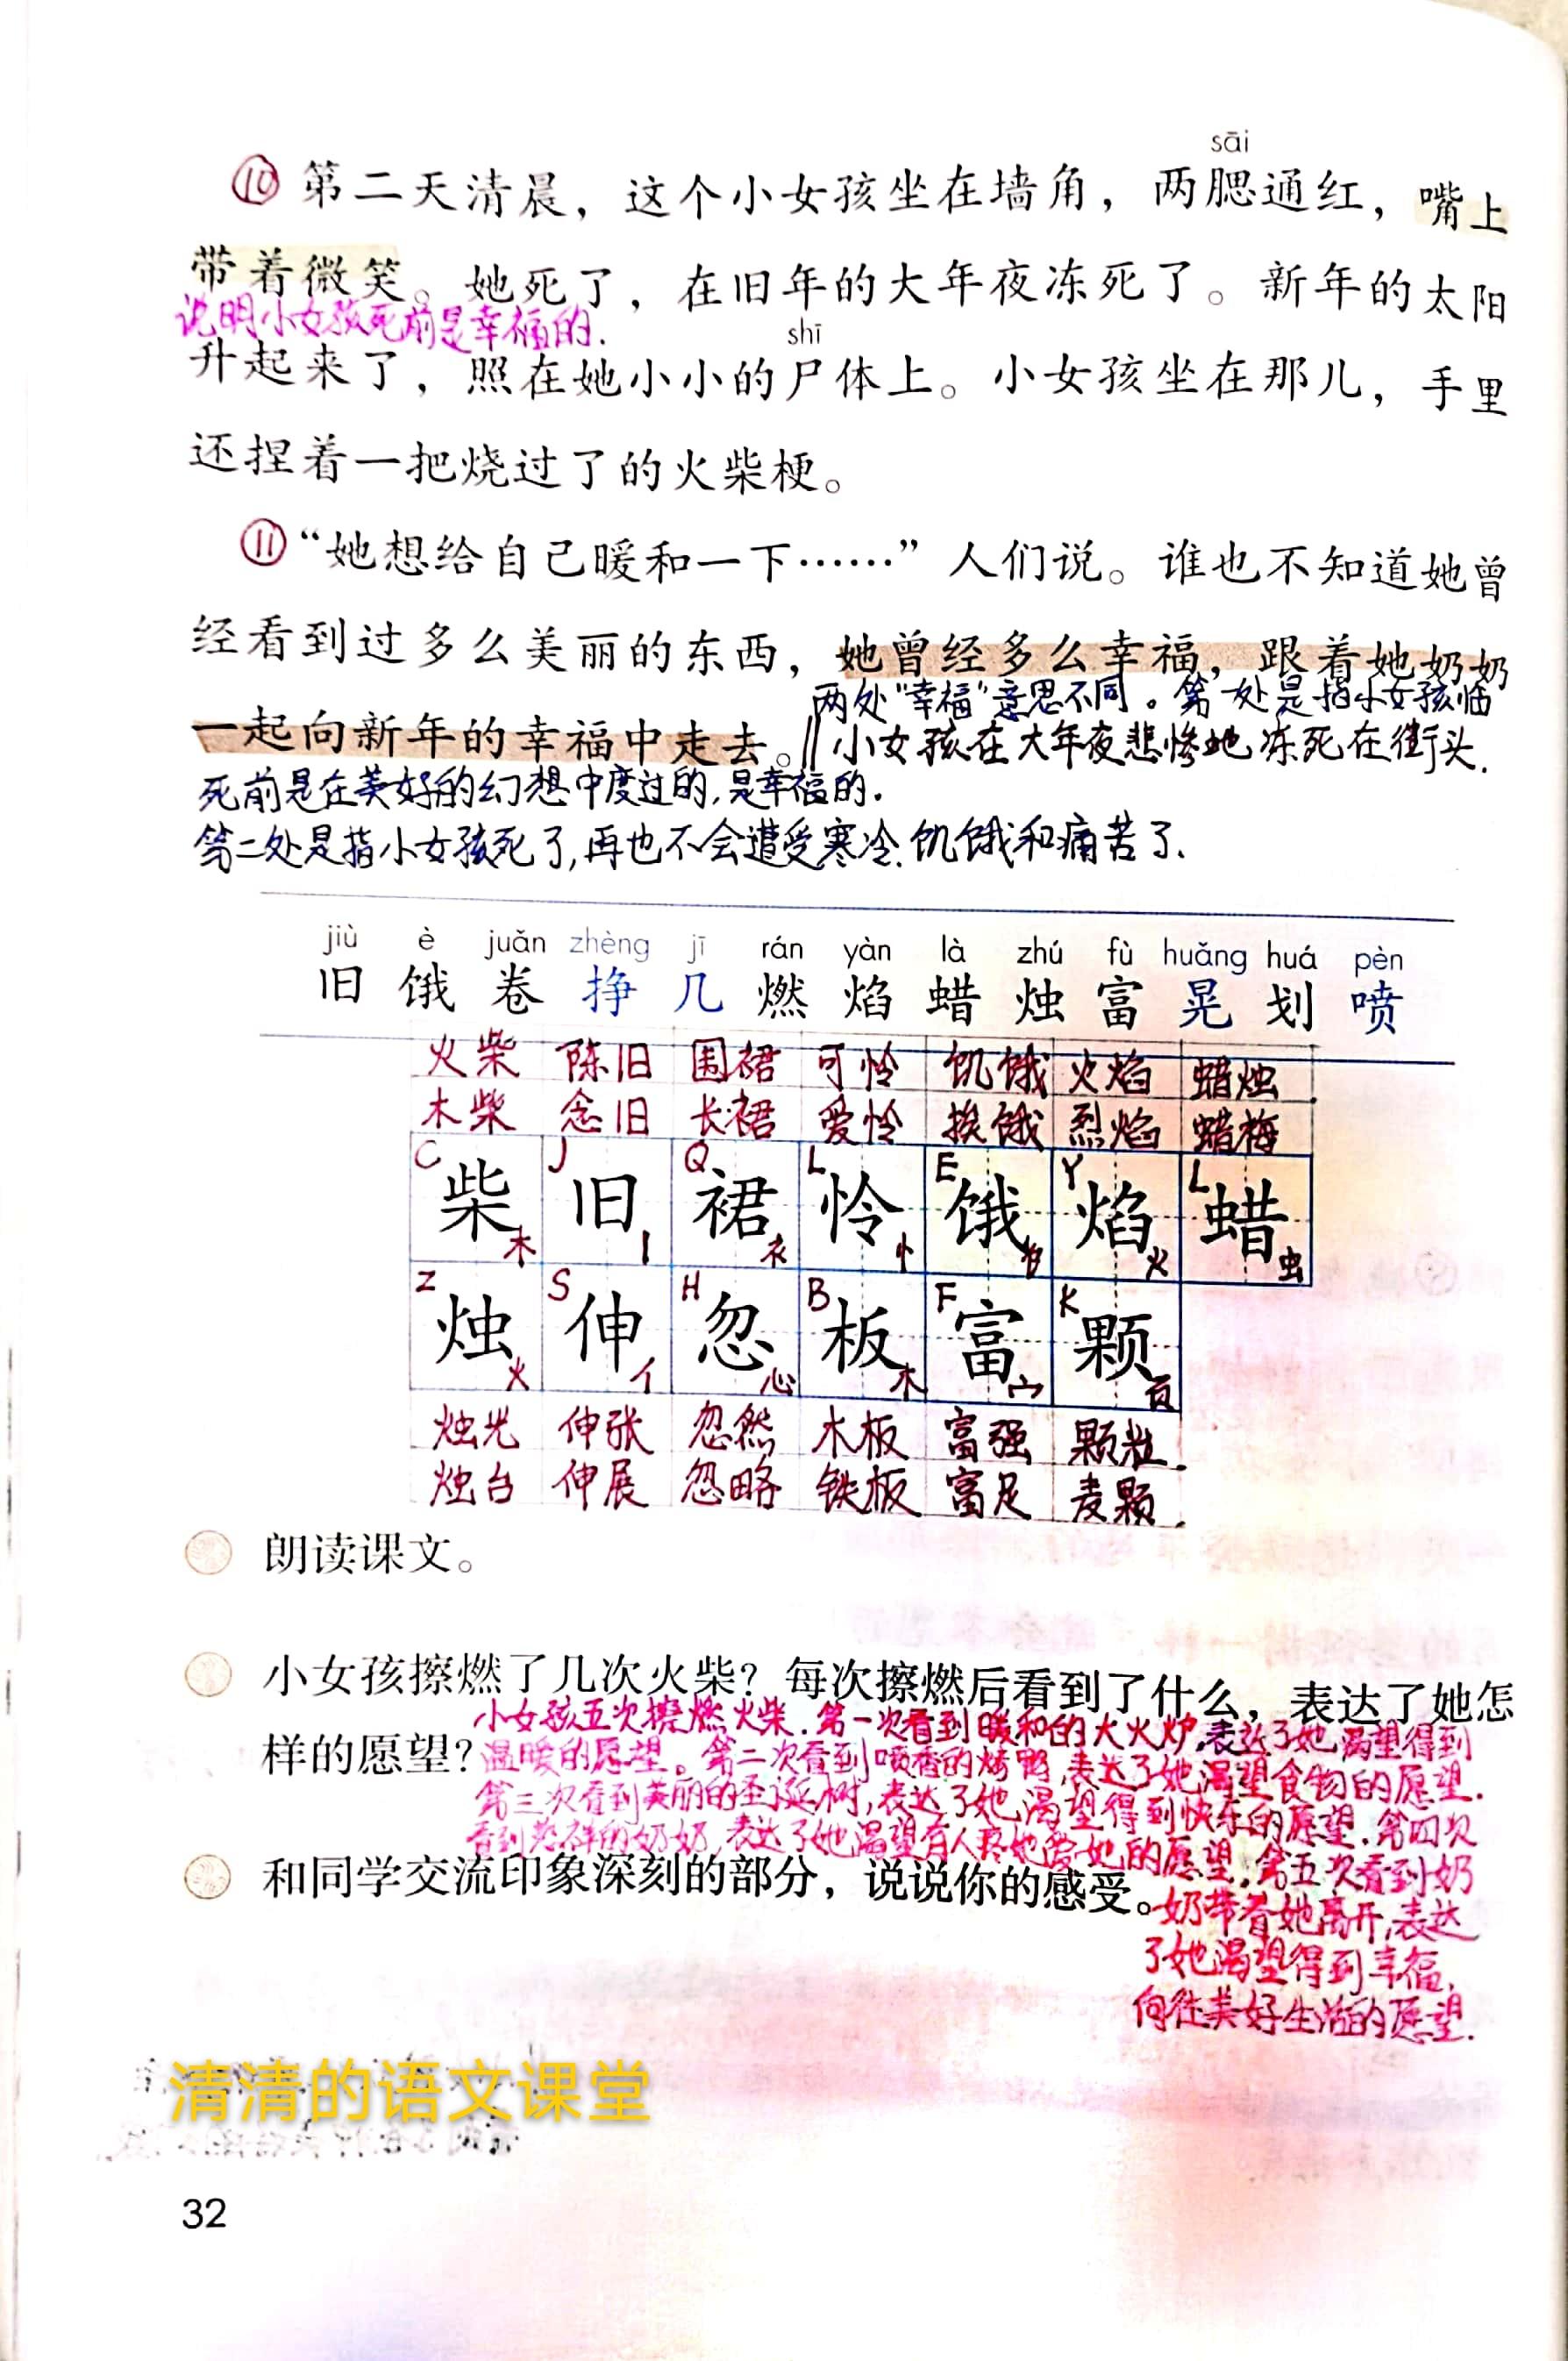 sāi
⑩ 第二天清晨，这个小女孩坐在墙角，两腮通红，嘴上
带着微笑。她死了，在旧年的大年夜冻死了。新年的太阳
说明小女孩死前是幸福的.
shī
升起来了，照在她小小的尸体上。小女孩坐在那儿，手里
还捏着一把烧过了的火柴梗。
⑪ “她想给自己暖和一下……”人们说。谁也不知道她曾
经看到过多么美丽的东西，她曾经多么幸福，跟着她奶奶
一起向新年的幸福中走去。
两处“幸福”意思不同。第一处是指小女孩临
死前是在美好的幻想中度过的,是幸福的.
第二处是指小女孩死了,再也不会遭受寒冷.饥饿和痛苦了.
‖小女孩在大年夜悲惨地冻死在街头.
jiù è juǎn zhèng jī rán yàn là zhú fù huǎng huá pèn
旧 饿 卷 挣 几 燃 焰 蜡 烛 富 晃 划 喷
火柴 陈旧 围裙 可怜 饥饿 火焰 蜡烛
木柴 念旧 长裙 爱怜 挨饿 烈焰 蜡梅
C J Q L E Y L
柴 旧 裙 怜 饿 焰 蜡
木 丨 衤 忄 饣 火 虫
Z S H B F K
烛 伸 忽 板 富 颗
火 亻 心 木 宀 页
烛光 伸张 忽然 木板 富强 颗粒
烛台 伸展 忽略 铁板 富足 麦颗
朗读课文。
小女孩擦燃了几次火柴？每次擦燃后看到了什么，表达了她怎
样的愿望？
小女孩五次擦燃火柴.第一次看到暖和的大火炉,表达了她渴望得到
温暖的愿望。第二次看到喷香的烤鸭,表达了她渴望食物的愿望.
第三次看到美丽的圣诞树,表达了她渴望得到快乐的愿望.第四次
看到慈祥的奶奶,表达了她渴望有人疼她爱她的愿望.第五次看到奶
奶带着她离开,表达
了她渴望得到幸福,
向往美好生活的愿望.
和同学交流印象深刻的部分，说说你的感受。
清清的语文课堂
32